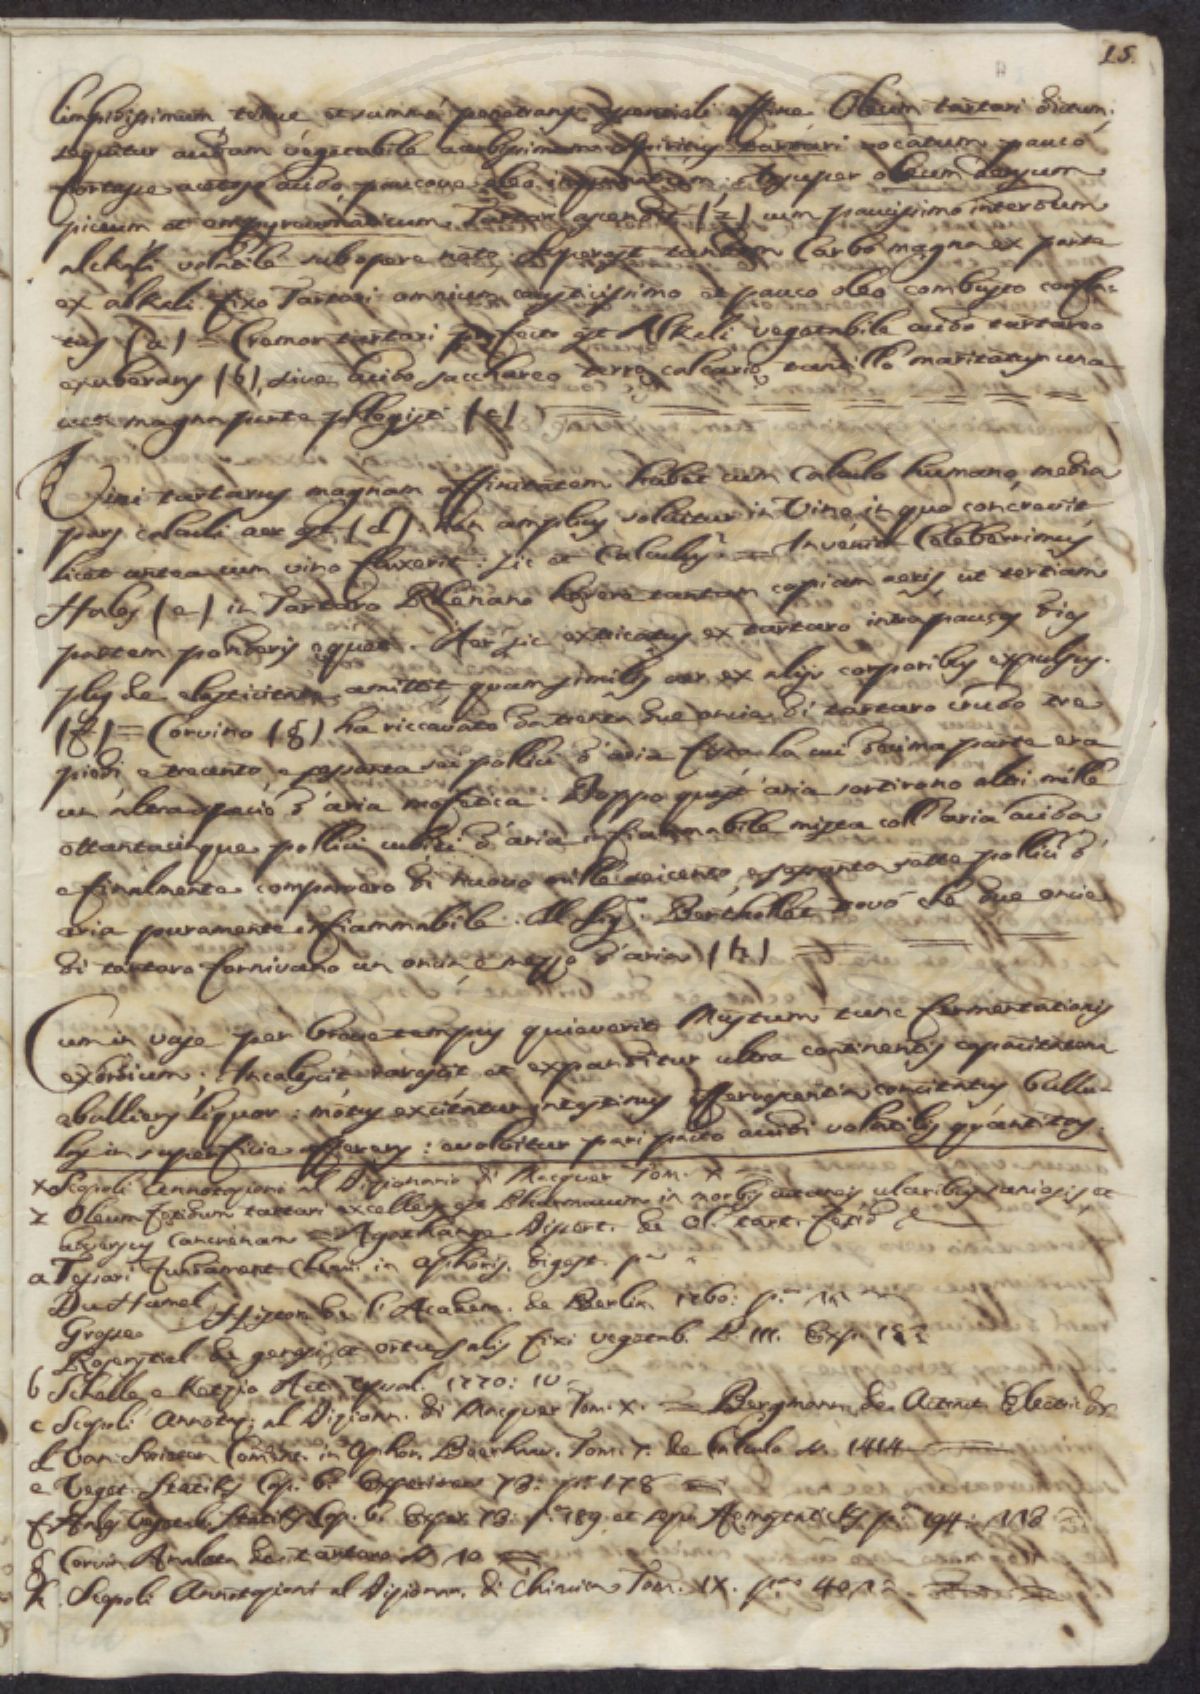 15.
limpidissimum tenue et summe penetrans essentiali affine Oleum tartari dictum.
sequitur acidum vegetabile acerbissimum Spiritus tartari vocatum pauco
fortasse acetoso acido paucove oleo inquinatum. Insuper oleum
piceum et empyreumaticum Tartari ascendit (z) cum paucissimo interdum
alchali volatile subopere nato. Superest tandem Carbo magna ex parte
ex alkali fixo Tartari omnium caustissimo et pauco oleo combusto confla-
tus (a) = Cremor tartari perfecto est Alkali vegetabile acido tartareo
exuberans (b), sive acido sacchareo terra calcaria tantillo maritatum una
cum magna parte phlogisti (c)
Vini tartarus magnam affinitatem habet cum Calculo humano, media
pars calculi aer est (d): non amplius solvitur in Vino in quo concrevit
licet antea cum vino fluxerit: sic et Calculus = Invenit Celeberrimus
Hales (e) in Tartaro Rhenano hærere tantam copiam aeris, ut tertiam
partem ponderis æquet. Aer sic extricatus ex tartaro intra paucos dies
plus de elasticitate amittit, quam similis aer ex alijs corporibus expulsus.
(f) = Corvino (g) ha riccavato da trenta due oncie di tartaro crudo tre
piedi e trecento e sessanta sei pollici d'aria fissa la cui decima parte era
un'altra spacio d'aria mofetica. Doppo quest'aria sortirono altri mille
ottantacinque pollici cubici d'aria infiammabile mista coll'aria acida
e finalmente comparvero di nuovo mille seicento, e sessanta sette pollici d'
aria puramente infiammabile. Il Sigr. Berthollet trovò che due oncie
di tartaro fornivano un oncia e mezzo d'aria (h) =
Cum in vase per breve tempus quieverit Mustum tunc fermentationis
exordium. Incalescit rarescit et expanditur ultra continentis capacitatem
ebulliens liquor: motus excitatur intestinus effervescentia concitatus bullu-
las in superficie efferens: evolvitur pari passu acidi volatilis quantitas.
x Scopoli Annotazioni al Dizionario di Macquer Tom. X
z Oleum foetidum tartari excellens est Pharmacum in morbis cutaneis ulceribus saniosis, et
adversus Cancrenam = Dissert. de Ol. tart. foetido
a Tessari Fundament. Chemi. in Aphoris. digest. p.
Du Hamel
Grosse Histoire de l'Academ. de Berlin 1760: p.
Rosenstiel de genesi, et ortu salis fixi vegetab. L. III. Exp. 152
b Schelle e Retzio Act. Upsal. 1770: 10
c Scopoli Annotaz. al Dizionn. di Macquer Tom. X. = Bergmann de Attract. Electiv.
d Van Swieten Comment. in Aphor. Boerhav. Tom. 5. de Calculo N. 1414
e Veget. Statiks Cap. 6. Experimen 73. p. 178
f Hales Vegetab. Statiks Cap. 6. Exper. 73. p. 189 et seq. Hæmastatiks p. 194: 118
g Corvin. Analect. de tartaro N. 10 =
h Scopoli Annotazioni al Dizionn. di Chimica Tom. IX. p.